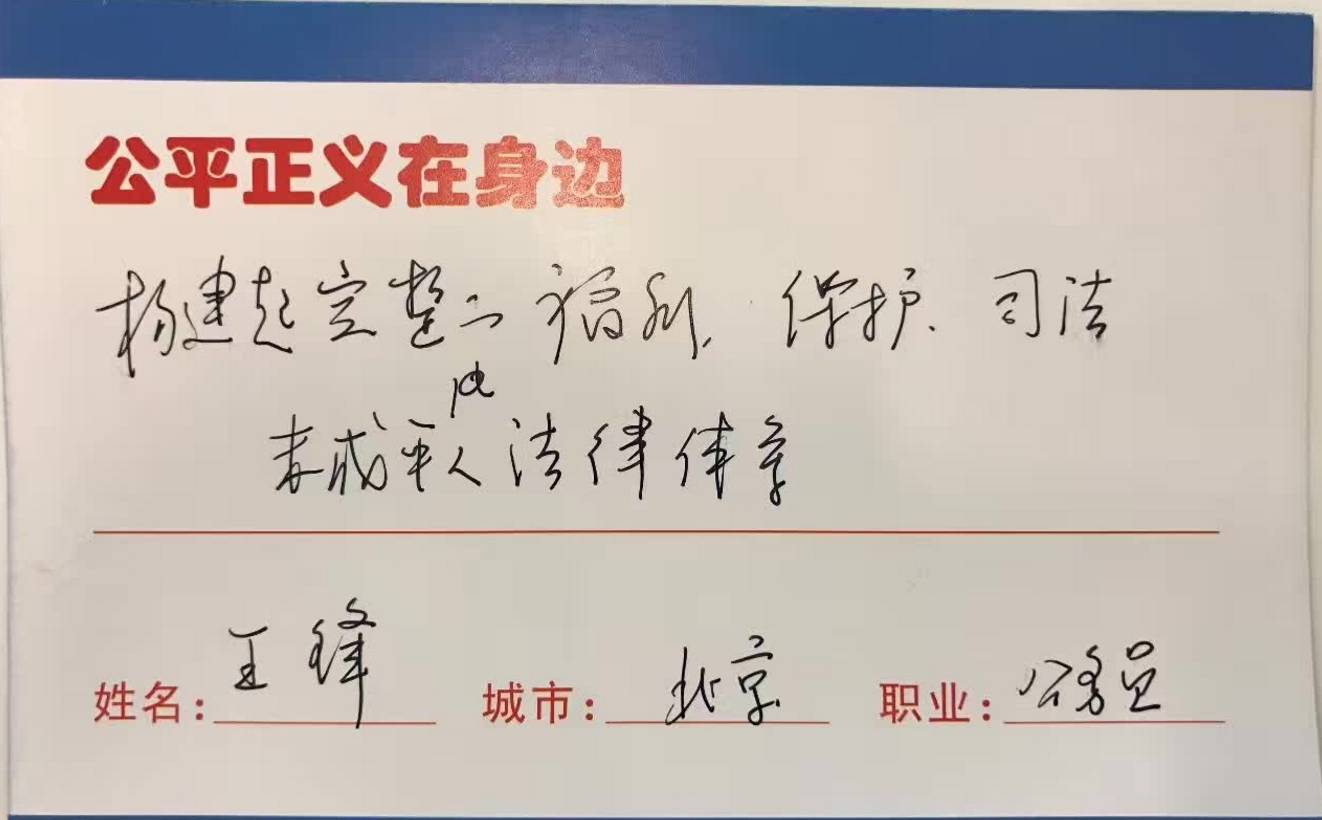 公平正义在身边
构建起完整的福利、保护、司法
未成年人的法律体系
姓名：王锋 城市：北京 职业：公务员